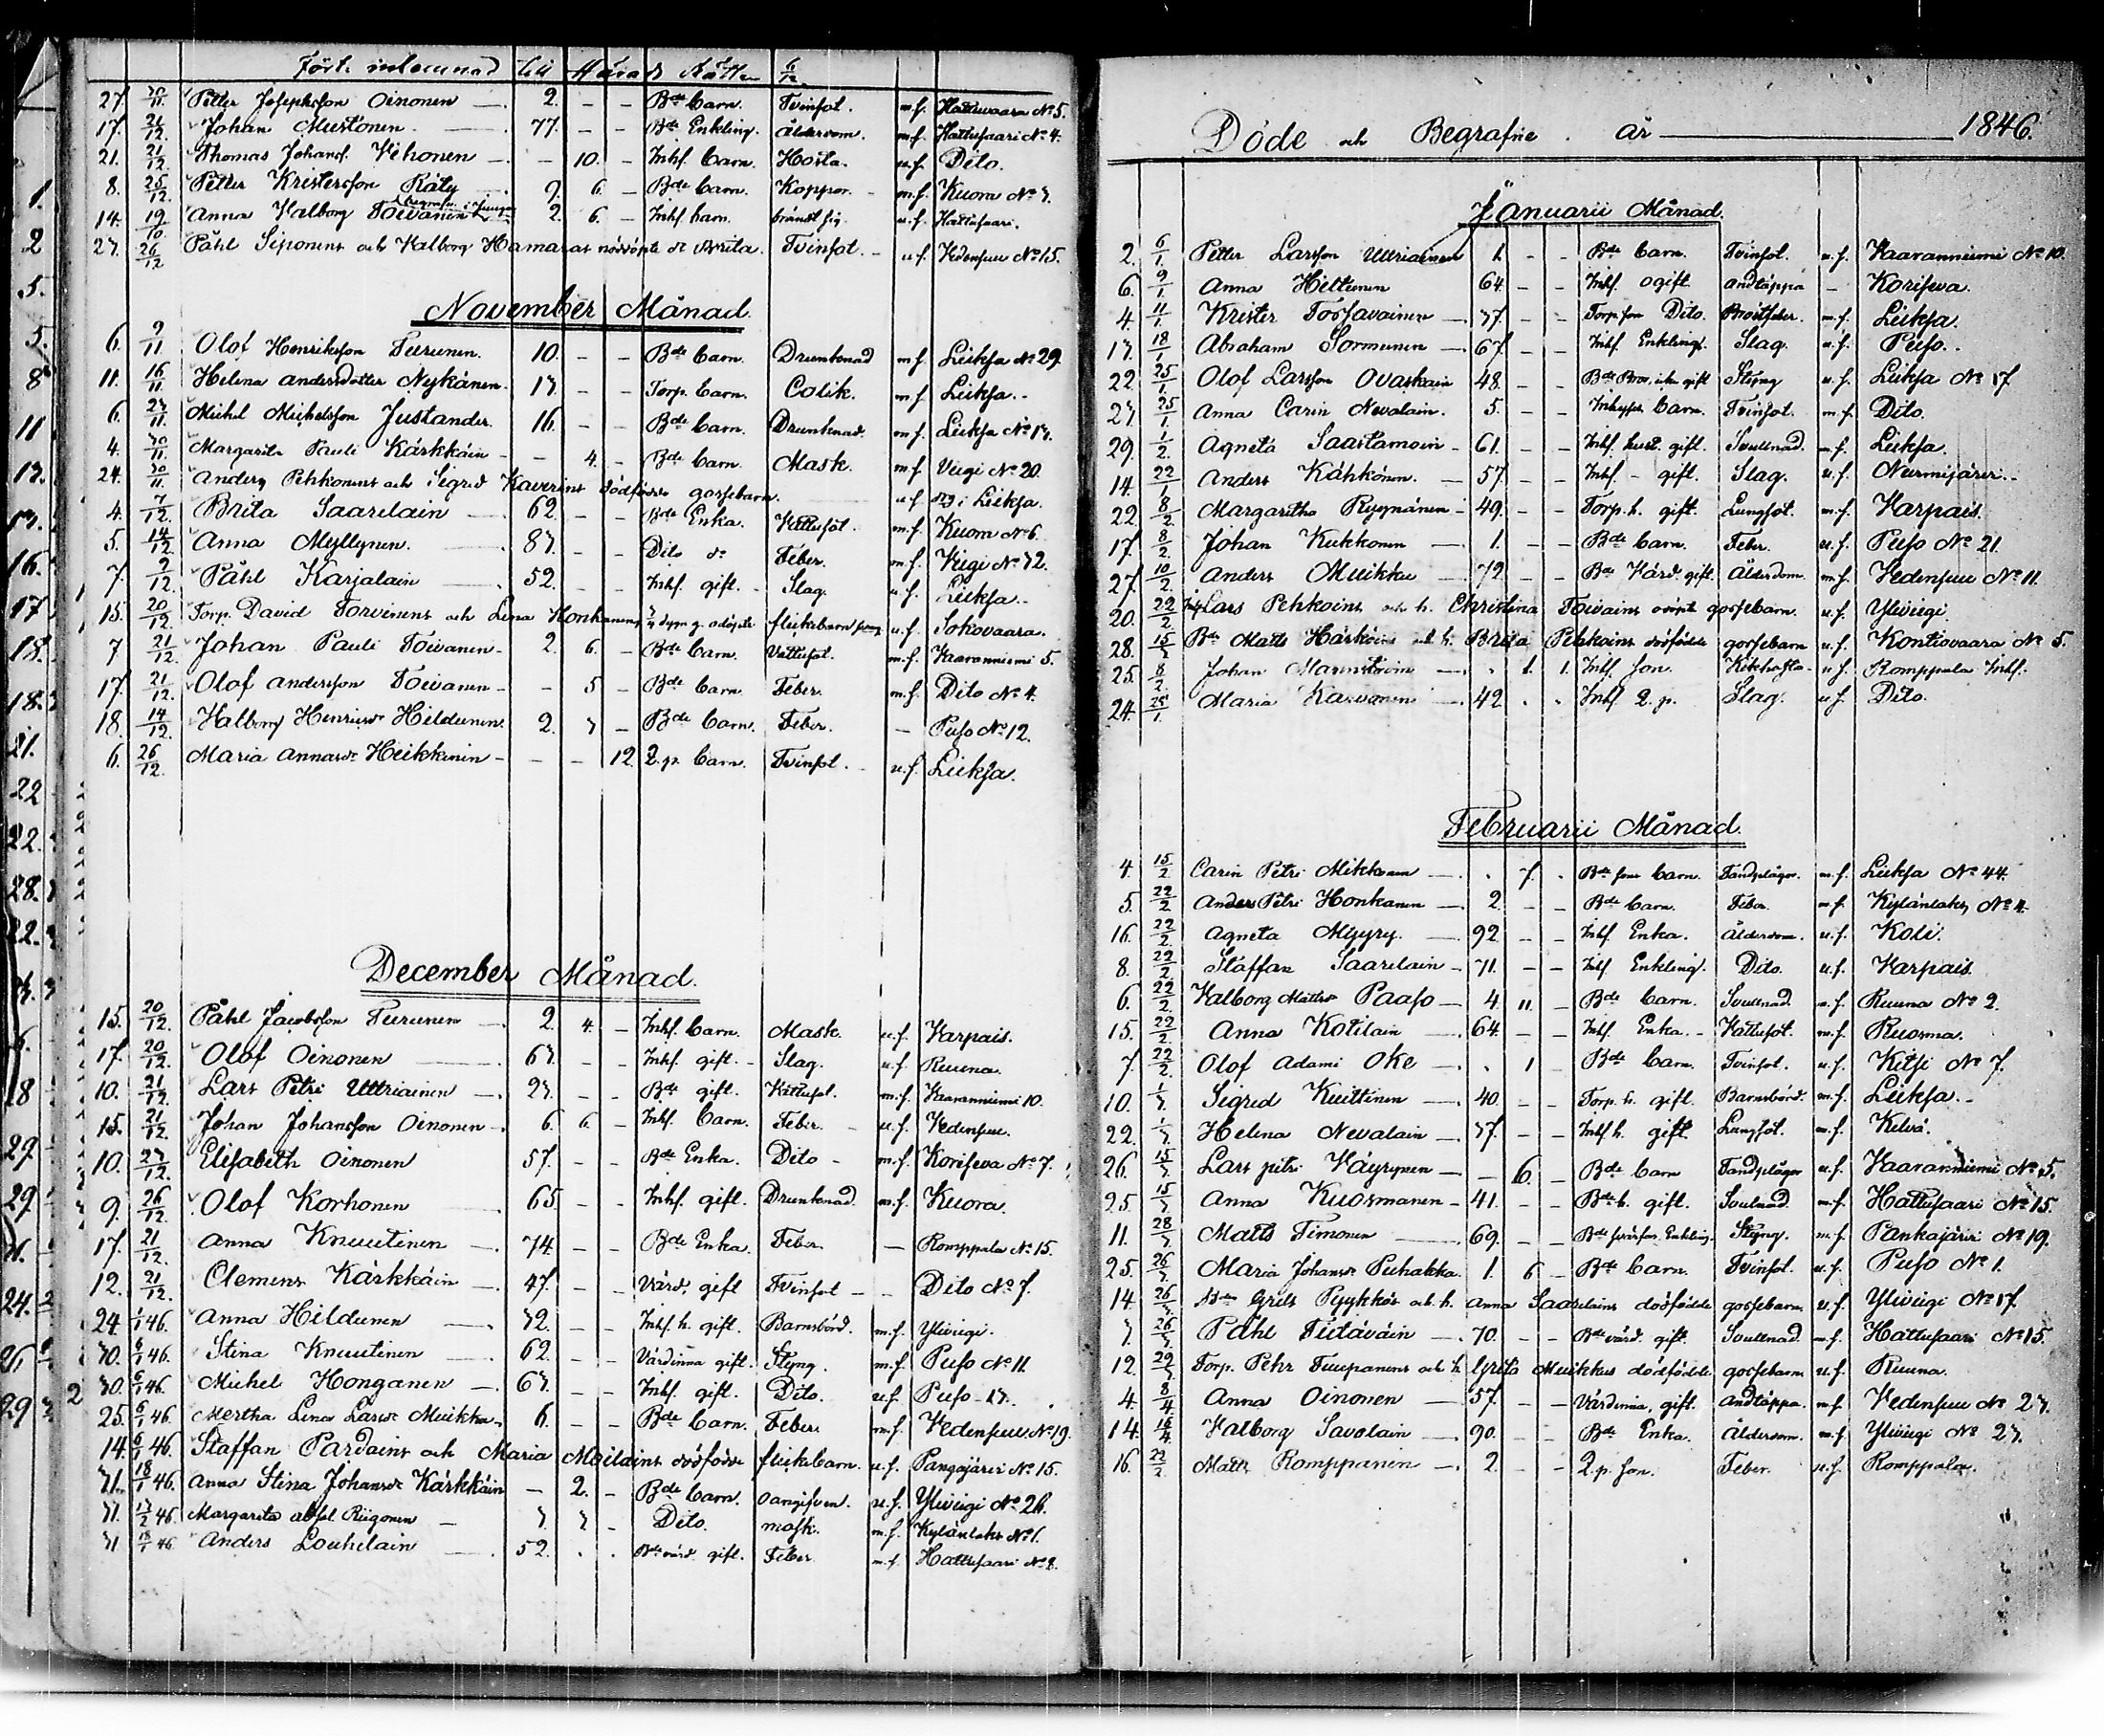 Fört. inlemnad till Härads Rätten 6/12
27. 30/11. Petter Josephsson Oinonen 2. - - Bde Barn. Tvinsot. m.f. Hattuvaara No 5.
17. 21/12. Johan Mustonen. 77. - - Bde Enkling. Ålderdom. m.f. Hattusaari No 4.
21. 21/12. Thomas Johans. Vehonen - 10. - Inhs. Barn. Hosta. u.f. Dito.
8. 25/12. Petter Kristersson Räty 9. 6. - Bde Barn. Koppor. m.f. Kuora No 3.
14. 19/10. Anna Valborg Toivanen 2. 6. - Inhs. barn. bränt sig. u.f. Hattusaari.
27. 26/12 Påhl Siponens och Valborg Hamaras nöddöpte dr Brita. Tvinsot. - u.f. Vedensuu No 15.
November Månad.
6. 9/11. Olof Henriksson Turunen. 10. - - Bde Barn. Drunknad m.f. Lieksa No 29.
11. 16/11. Helena Andersdotter Nykänen. 13. - - Torp. Barn. Colik. m.f. Lieksa.
6. 23/11. Michel Michelsson Justander. 16. - - Bde Barn. Drunknad. m.f. Lieksa No 13.
4. 30/11. Margareta Pauli Kärkkäin - - 4. - Bde Barn. Mask. m.f. Viegi No 20.
24. 30/11. Anders Pehkonens och Sigrid Kaverins dödfödde gossebarn. u.f. i Lieksa.
4. 7/12. Brita Saarelain 62. - - Bde Enka. Vattusot. m.f. Kuora No 6.
5. 14/12. Anna Myllynen. 83. - - Dito do Feber. m.f. Viegi No 32.
7. 9/12. Påhl Karjalain 52. - - Inhs. gift. - Slag. u.f. Lieksa.
15. 20/12. Torp. David Torvinens och Lena Honkanens odöpte flickebarn u.f. Sokovaara.
7 21/12. Johan Pauli Toivanen - 2. 6. - Bde Barn. Vattusot. m.f. Vaaranniemi 5.
17. 21/12. Olof Andersson Toivanen - - 5 - Bde Barn Feber. m.f. Dito No 4.
18. 14/12. Valborg Henricsdr Hildunen. 2. 3 - Bde Barn. Feber. - Puso No 12.
6. 26/12. Maria Annasdr Heikkinin - - - 12 2.p. Barn. Tvinsot. - u.f. Lieksa.
December Månad.
15. 20/12. Påhl Jacobsson Turunen 2. 4. - Inhs. Barn. Mask. u.f. Varpais.
17. 20/12. Olof Oinonen 63. - - Inhs. gift. - Slag. u.f. Ruuna.
10. 21/12. Lars Petri Uttriainen 23. - - Bde gift. Vattusot. m.f. Vaaranniemi 10.
15. 21/12. Johan Johansson Oinonen - 6. 6. - Inhs. Barn. Feber. - u.f. Vedensuu.
10. 27/12. Elisabeth Oinonen 57. - - Bde Enka. Dito - m.f. Koriseva No 7.
9. 26/12. Olof Korhonen 65 - - Inhs. gift. Drunknad. m.f. Kuora.
17. 21/12. Anna Knuutinen 74. - - Bde Enka. Feber. - Romppala No 15.
12. 21/12. Clemens Kärkkäin 47. - - Värd. gift Tvinsot - - Dito No 7.
24. 1/1 46. Anna Hildunen 32. - - Inhs. h. gift. Barnsbörd. m.f. Ylivieigi.
30. 6/1 46. Stina Knuutinen 62. - - Värdinna gift. Styng. m.f. Puso No 11.
30. 6/1 46. Michel Honganen 63. - - Inhs. gift. Dito. u.f. Puso - 13.
25. 6/1 46. Mertha Lena Larsdr Muikku 6. - - Bde Barn. Feber. m.f. Vedensuu No 19.
14. 6/1 46. Staffan Pardains och Maria Moilains dödfödde flickebarn. u.f. Pangajärvi No 15.
31. 18/1 46. Anna Stina Johansdr Kärkkäin - 2. - Bde Barn. oangifven. u.f. Ylivieigi No 26.
31. 13/2 46. Margareta Riigonen 3. 3 - Dito. mask. m.f. Kylänlaks No 1.
31 18/1 46 Anders Louhelain 52. . . Bde värd. gift. Feber m.f. Hattusaari No 8.
Döde och Begrafne år 1846.
Januarii Månad.
2. 6/1. Petter Larsson Uttriainen 1. - - Bde Barn. Tvinsot. u.f. Vaaranniemi No 10.
6. 9/1. Anna Hettunen 64. - - Inhs. ogift. andtäppa - Koriseva.
4. 11/1. Krister Torsavainen 37. - - Torp. son Dito. Bröstfeber. m.f. Lieksa.
13. 18/1 Abraham Sormunen 67. - - Inhs. Enkling. Slag. u.f. Puso.
22 25/1. Olof Larsson Ovaskain 48. - - Bde Bror. gift Styng u.f. Lieksa No 17
23 25/1. Anna Carin Nevalain. 5. - - Inhyses Barn. Tvinsot. m.f. Dito.
29. 1/2. Agneta Saastamoin - 61. - - Inhs. hust. gift. Svullnad. m.f. Lieksa.
14. 22/1 Anders Kähkönen. 57. - - Inhs. - gift. Slag. u.f. Nurmijärvi.
22. 8/2 Margaretha Ryynänen - 49. - - Torp. h. gift. Lungsot. m.f. Varpais.
17. 8/2. Johan Kukkonen 1. - - Bde Barn. Feber. u.f. Puso No 21.
27. 10/2. Anders Muikku 72 - - Bde Värd. gift. Ålderdom. m.f. Vedensuu No 11.
20. 22/2. Inhs. Lars Pehkoins och h. Christina Toivains odöpte gossebarn. u.f. Ylivieigi
28. 15/3 Bde Matts Härköins och h. Brita Pehkoins dödfödde gossebarn u.f. Kontiovaara No 5.
25. 8/2. Johan . 1. 1. Inhs. son. Kikhosta - u.f. Romppala Inhs.
24. 25/1. Maria Karvonen 42 . . Inhs 2.p. Slag. u.f. Dito.
Februarii Månad.
4. 15/2 Carin Petri Mikkonen . 7. . Bde sons Barn. Tandplågor. m.f. Lieksa No 44.
5. 22/2 Anders Petri Honkanen 2. - - Bde Barn. Feber. m.f. Kylänlaks No 4.
16. 22/2 Agneta Myyry. 92. - - Inhs. Enka. Ålderdom. u.f. Koli.
8. 22/2. Staffan Saarelain - 71. - - Inhs. Enkling. Dito. u.f. Varpais.
6. 22/2 Valborg Mattsdr Paaso 4 11 - Bde Barn. Svullnad. u.f. Ruuna No 2.
15. 22/2 Anna Kotilain 64. - - Inhs. Enka. - Vattusot. m.f. Ruosma.
7. 22/2. Olof Adami Oke . 1 - Bde Barn. Tvinsot. u.f. Kitsi No 7.
10. 1/3. Sigrid Kuittinen 40. - - Torp. h. gift. Barnsbörd. m.f. Lieksa.
22. 1/3 Helena Nevalain 37. - - Inhs. h. gift. Lungsot. m.f. Kelvä.
26. 15/3 Lars petri Väyrynen - 6. - Bde Barn Tandplågor u.f. Vaaranniemi No 5.
25. 15/3 Anna Kuosmanen - 41. - - Bde h. gift. Svulnad. m.f. Hattusaari No 15.
11. 28/3 Matts Timonen 69. - - Bde Enkling. Styng. m.f. Pankajärvi No 19.
25. 26/3 Maria Johansdr Puhakka. 1. 6 - Bde Barn. Tvinsot. u.f. Puso No 1.
14. 26/3. Bde Grels Pyykkös och h. Anna Saarelains dödfödde gossebarn u.f. Ylivieigi No 17.
3 26/3. Påhl Tietäväin 70. - - Bde värd. gift. Svullnad. m.f. Hattusaari No 15.
12. 29/3. Torp. Pehr Tuupanens och h. Greta Muikkus dödfödde gossebarn u.f. Ruuna.
4. 8/4 Anna Oinonen 57. - - Värdinna, gift. andtäppa. m.f. Vedensuu No 23.
14. 16/4. Valborg Savolain 90. - - Bde Enka. Ålderdom. m.f. Ylivieigi No 23.
16. 22/2. Matts Romppanen 2. - - 2.p. son. Feber. u.f. Romppala.